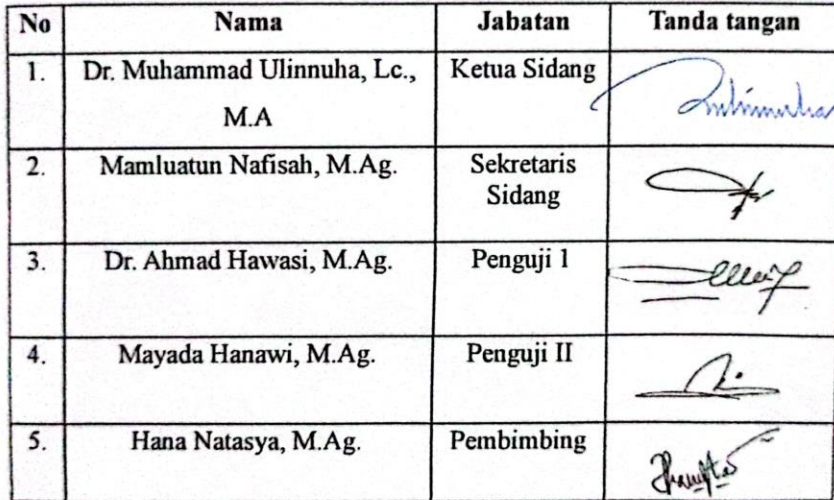 No Nama Jabatan Tanda tangan
1. Dr. Muhammad Ulinnuha, Lc., Ketua Sidang
M.A
2. Mamluatun Nafisah, M.Ag. Sekretaris
Sidang
3. Dr. Ahmad Hawasi, M.Ag. Penguji 1
4. Mayada Hanawi, M.Ag. Penguji II
5. Hana Natasya, M.Ag. Pembimbing